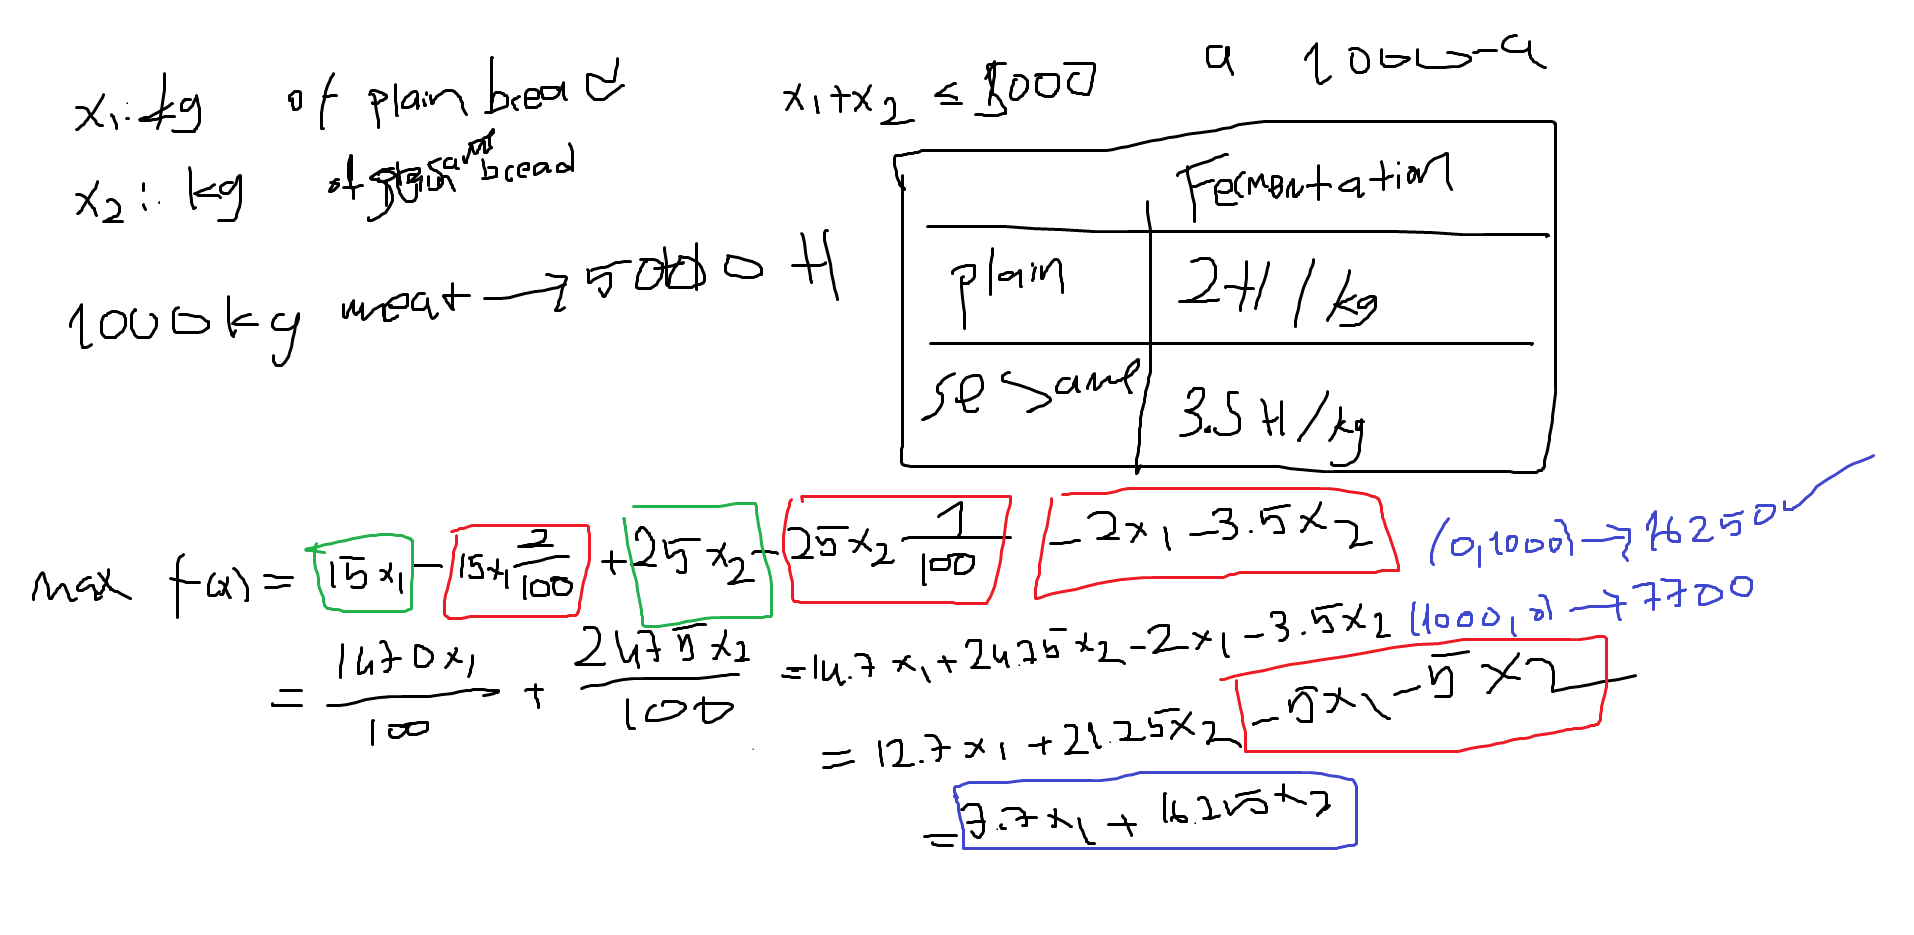 x₁: kg of plain bread
x₂: kg of sesame bread
1000 kg meat → 5000 H
x₁+x₂ ≤ 1000
a 1000-a
Fermentation
plain 2H/kg
sesame 3.5H/kg
max f(x) = 15x₁ - 15x₁ 2/100 + 25x₂ - 25x₂ 1/100 - 2x₁ - 3.5x₂
(0,1000) → 16250 ✓
(1000,0) → 7700
= 1470x₁/100 + 2475x₂/100 = 14.7x₁ + 24.75x₂ - 2x₁ - 3.5x₂
= 12.7x₁ + 21.25x₂ - 5x₁ - 5x₂
= 7.7x₁ + 16.25x₂